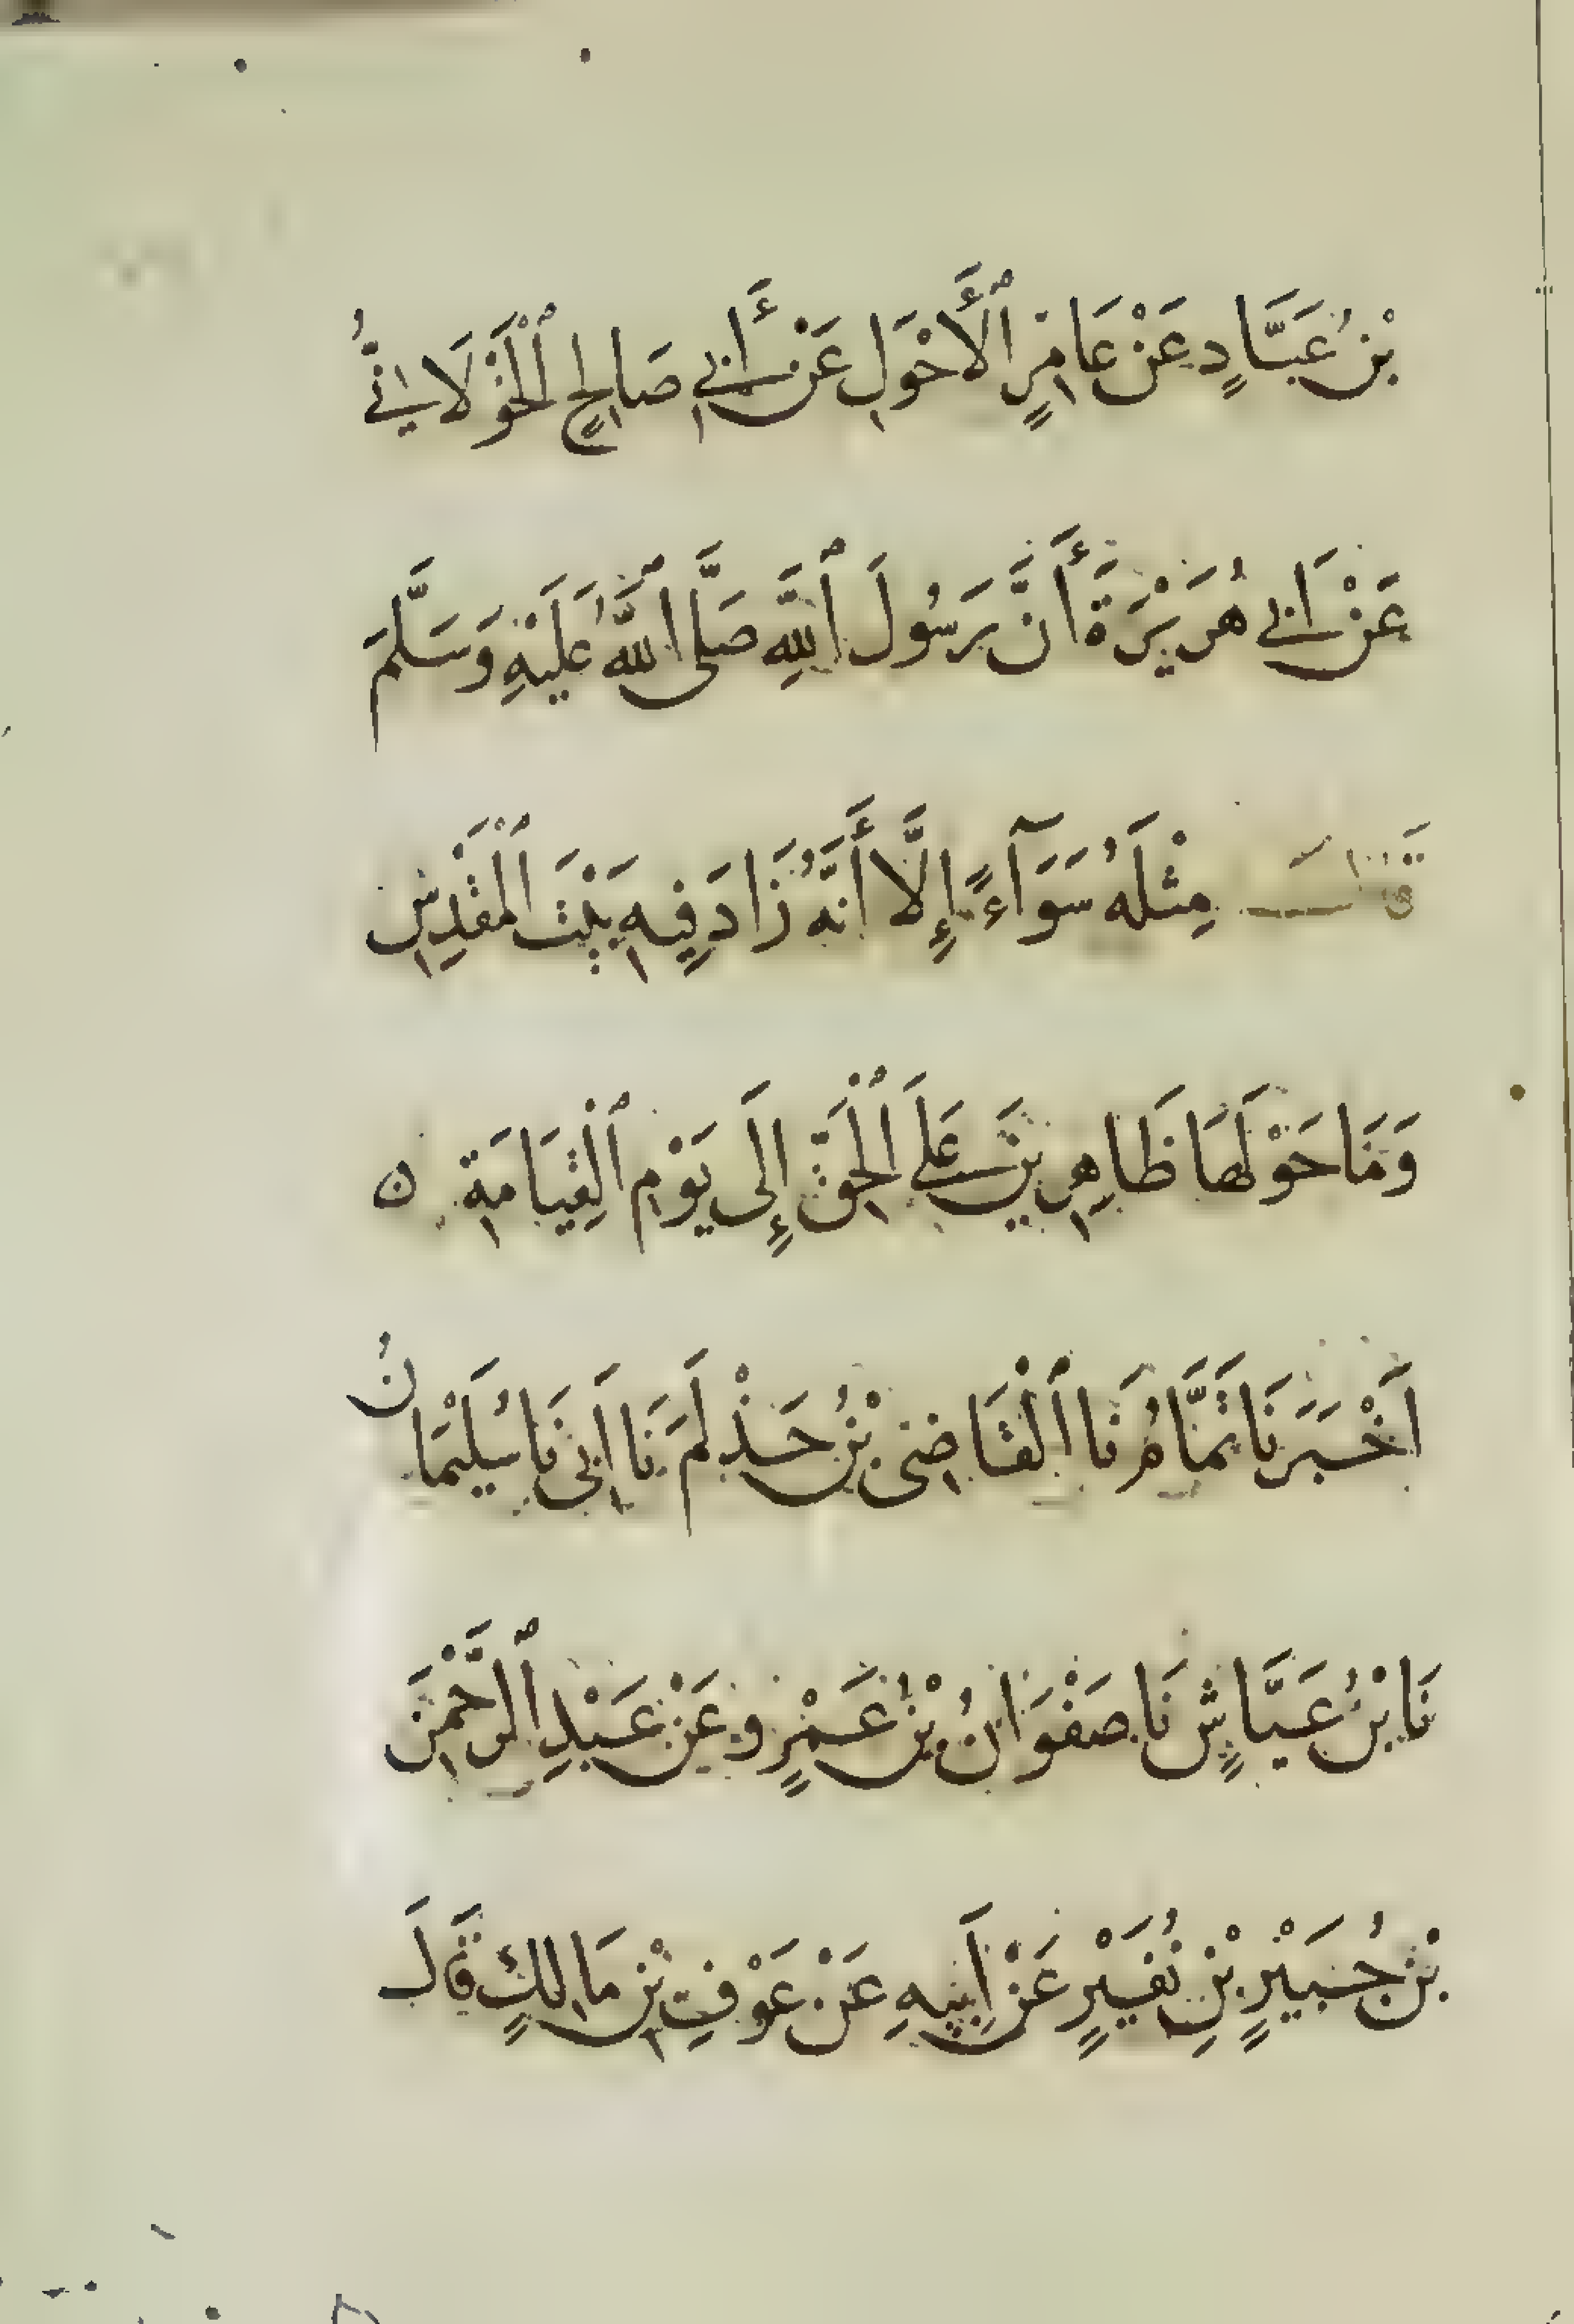 بْنُ عَبَّادٍ عَنْ عَامِرٍ ٱلْأَحْوَلِ عَنْ أَبِي صَالِحٍ ٱلْخَوْلَانِيِّ
عَنْ اَبِي هُرَيْرَةَ أَنَّ رَسُولَ ٱللَّهِ صَلَّى ٱللَّهُ عَلَيْهِ وَسَلَّمَ
قَالَ مِثْلَهُ سَوَآءً إِلَّا أَنَّهُ زَادَ فِيهِ بَيْتَ ٱلْمَقْدِسِ
وَمَا حَوْلَهَا ظَاهِرِينَ عَلَى ٱلْحَقِّ إِلَى يَوْمِ ٱلْقِيَامَةِ ن
اَخْبَرَنَا تَمَّامُ نَا ٱلْقَاضِي بْنُ حَذْلَمَ نَا اَبِي نَا سُلَيْمَانُ
نَا بْنُ عَيَّاشٍ نَا صَفْوَانُ بْنُ عَمْرٍو عَنْ عَبْدِ ٱلرَّحْمَنِ
بْنِ جُبَيْرٍ بْنِ نُفَيْرٍ عَنْ اَبِيهِ عَنْ عَوْفِ بْنِ مَالِكٍ قَالَ